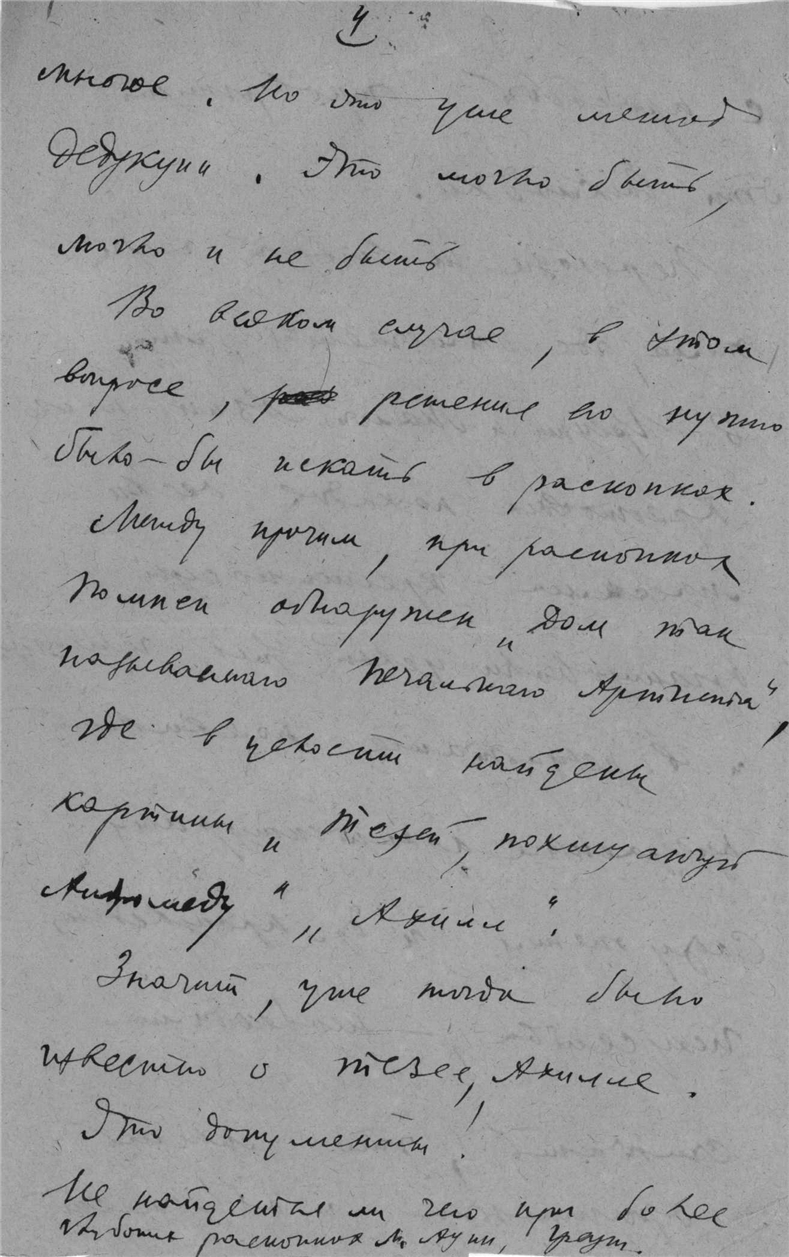 4
многое. Но это уже метод
дедукции. Это можно быть,
можно и не быть
Во всяком случае, в этом
вопросе, решение его нужно
было-бы искать в раскопках.
Между прочим, при раскопках
Помпеи обнаружен „Дом так
называемого Печального Артиста",
где в целости найдены
картины „Тезей, похищающий
Андромеду" „Ахилл".
Значит, уже тогда было
известно о Тезее, Ахилле.
Это документы!
Не найдется ли чего при более
глубоких раскопках М. Азии,